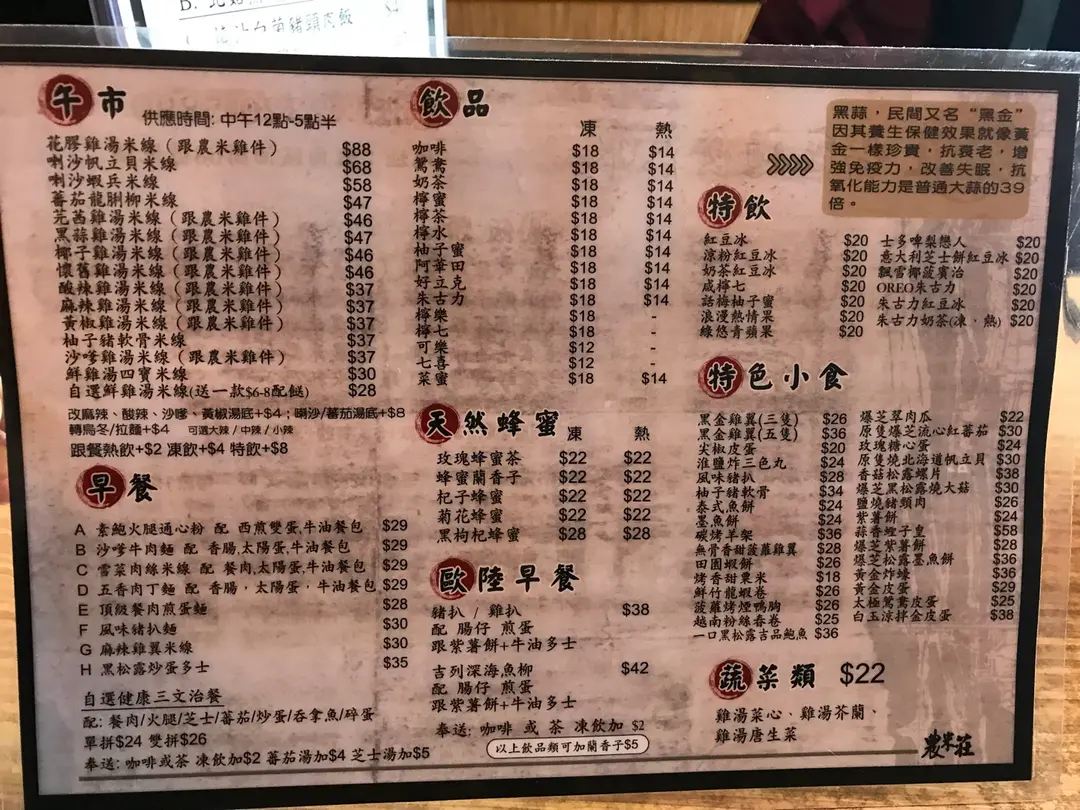 午市
供應時間: 中午12點-5點半
花膠雞湯米線（跟農米雞件） $88
喇沙帆立貝米線 $68
喇沙蝦兵米線 $58
蕃茄龍脷柳米線 $47
芫茜雞湯米線（跟農米雞件） $46
黑蒜雞湯米線（跟農米雞件） $47
椰子雞湯米線（跟農米雞件） $46
懷舊雞湯米線（跟農米雞件） $46
酸辣雞湯米線（跟農米雞件） $37
麻辣雞湯米線（跟農米雞件） $37
黃椒雞湯米線（跟農米雞件） $37
柚子豬軟骨米線 $37
沙嗲雞湯米線（跟農米雞件） $37
鮮雞湯四寶米線 $30
自選鮮雞湯米線(送一款$6-8配餸) $28
改麻辣、酸辣、沙嗲、黃椒湯底+$4；喇沙/蕃茄湯底+$8
轉烏冬/拉麵+$4 可選大辣 / 中辣 / 小辣
跟餐熱飲+$2 凍飲+$4 特飲+$8
早餐
A 素鮑火腿通心粉 配 西煎雙蛋,牛油餐包 $29
B 沙嗲牛肉麵 配 香腸,太陽蛋,牛油餐包 $29
C 雪菜肉絲米線 配 餐肉,太陽蛋,牛油餐包 $29
D 五香肉丁麵 配 香腸，太陽蛋，牛油餐包 $29
E 頂級餐肉煎蛋麵 $28
F 風味豬扒麵 $30
G 麻辣雞翼米線 $30
H 黑松露炒蛋多士 $35
自選健康三文治餐
配: 餐肉/火腿/芝士/蕃茄/炒蛋/吞拿魚/碎蛋
單拼$24 雙拼$26
奉送: 咖啡或茶 凍飲加$2 蕃茄湯加$4 芝士湯加$5
飲品
凍 熱
咖啡 $18 $14
鴛鴦 $18 $14
奶茶 $18 $14
檸蜜 $18 $14
檸茶 $18 $14
檸水 $18 $14
柚子蜜 $18 $14
阿華田 $18 $14
好立克 $18 $14
朱古力 $18 $14
檸樂 $18 -
檸七 $18 -
可樂 $12 -
七喜 $12 -
菜蜜 $18 $14
天然蜂蜜 凍 熱
玫瑰蜂蜜茶 $22 $22
蜂蜜蘭香子 $22 $22
杞子蜂蜜 $22 $22
菊花蜂蜜 $22 $22
黑枸杞蜂蜜 $28 $28
歐陸早餐
豬扒 / 雞扒 $38
配 腸仔 煎蛋
跟紫薯餅+牛油多士
吉列深海魚柳 $42
配 腸仔 煎蛋
跟紫薯餅+牛油多士
奉送: 咖啡 或 茶 凍飲加 $2
以上飲品類可加蘭香子$5
黑蒜，民間又名“黑金”
因其養生保健效果就像黃
金一樣珍貴，抗衰老，增
強免疫力，改善失眠，抗
氧化能力是普通大蒜的39
倍。
特飲
紅豆冰 $20
涼粉紅豆冰 $20
奶茶紅豆冰 $20
咸檸七 $20
話梅柚子蜜 $20
浪漫熱情果 $20
綠悠青蘋果 $20
士多啤梨戀人 $20
意大利芝士餅紅豆冰 $20
飄雪椰菠賓治 $20
OREO朱古力 $20
朱古力紅豆冰 $20
朱古力奶茶(凍，熱) $20
特色小食
黑金雞翼(三隻) $26
黑金雞翼(五隻) $36
尖椒皮蛋 $20
淮鹽炸三色丸 $24
風味豬扒 $28
柚子豬軟骨 $34
泰式魚餅 $24
墨魚餅 $24
碳烤羊架 $36
無骨香甜菠蘿雞翼 $28
田園蝦餅 $26
烤香甜粟米 $18
鮮竹龍蝦卷 $26
菠蘿烤煙鴨胸 $26
越南粉絲春卷 $25
一口黑松露吉品鮑魚 $36
爆芝翠肉瓜 $22
原隻爆芝流心紅蕃茄 $30
玫瑰糖心蛋 $24
原隻燒北海道帆立貝 $30
香菇松露螺片 $38
爆芝黑松露燒大菇 $30
鹽燒豬頸肉 $26
紫薯餅 $24
蒜香鯉子皇 $58
爆芝紫薯餅 $28
爆芝松露墨魚餅 $36
黃金炸蠔 $36
黃金皮蛋 $29
太極鴛鴦皮蛋 $25
白玉涼拌金皮蛋 $38
蔬菜類 $22
雞湯菜心、雞湯芥蘭、
雞湯唐生菜
農米莊